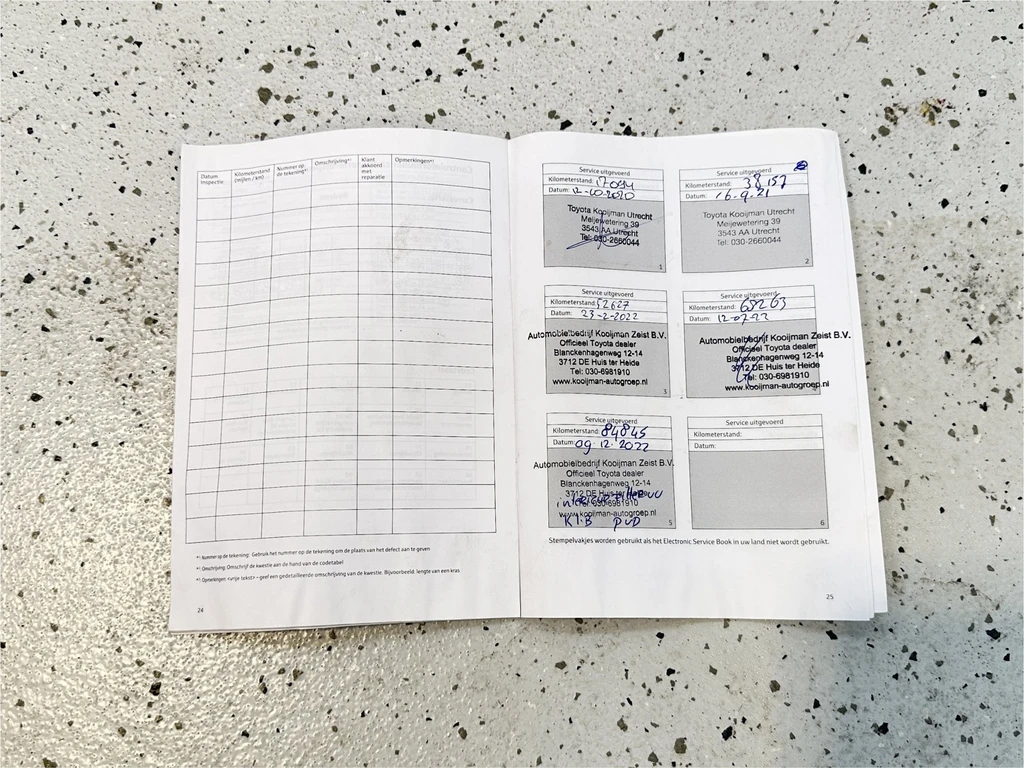 Datum inspectie
Kilometerstand (mijlen / km)
Nummer op de tekening*¹
Omschrijving*²
Klant akkoord met reparatie
Opmerkingen*³
*¹ Nummer op de tekening: Gebruik het nummer op de tekening om de plaats van het defect aan te geven
*² Omschrijving: Omschrijf de kwestie aan de hand van de codetabel
*³ Opmerkingen: <vrije tekst> - geef een gedetailleerde omschrijving van de kwestie. Bijvoorbeeld: lengte van een kras
24
Service uitgevoerd
Kilometerstand: 17094
Datum: 12-10-2020
Toyota Kooijman Utrecht
Meijewetering 39
3543 AA Utrecht
Tel: 030-2660044
1
Service uitgevoerd
Kilometerstand: 38157
Datum: 16-9-21
Toyota Kooijman Utrecht
Meijewetering 39
3543 AA Utrecht
Tel: 030-2660044
2
Service uitgevoerd
Kilometerstand: 52627
Datum: 23-2-2022
Automobielbedrijf Kooijman Zeist B.V.
Officieel Toyota dealer
Blanckenhagenweg 12-14
3712 DE Huis ter Heide
Tel: 030-6981910
www.kooijman-autogroep.nl
3
Service uitgevoerd
Kilometerstand: 68263
Datum: 12-07-22
Automobielbedrijf Kooijman Zeist B.V.
Officieel Toyota dealer
Blanckenhagenweg 12-14
3712 DE Huis ter Heide
Tel: 030-6981910
www.kooijman-autogroep.nl
Service uitgevoerd
Kilometerstand: 84845
Datum: 09.12.2022
Automobielbedrijf Kooijman Zeist B.V.
Officieel Toyota dealer
Blanckenhagenweg 12-14
3712 DE Huis ter Heide
Tel: 030-6981910
www.kooijman-autogroep.nl
5
Service uitgevoerd
Kilometerstand:
Datum:
6
Stempelvakjes worden gebruikt als het Electronic Service Book in uw land niet wordt gebruikt.
25